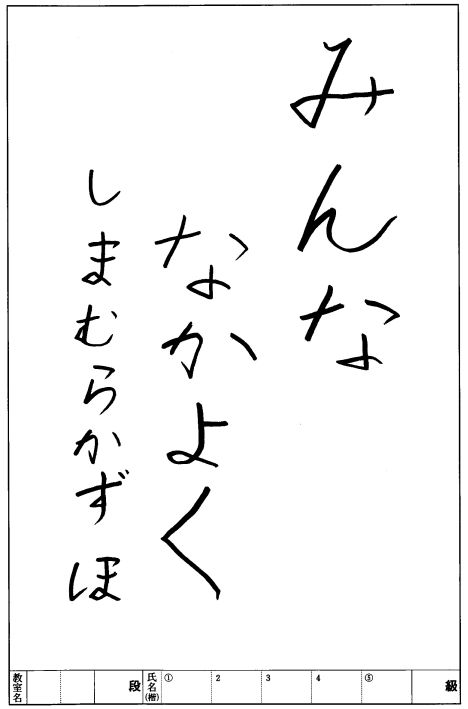 みんな
なかよく
しまむらかずほ
級 ⑤ 4 3 2 ① 氏名(楷) 段 教室名